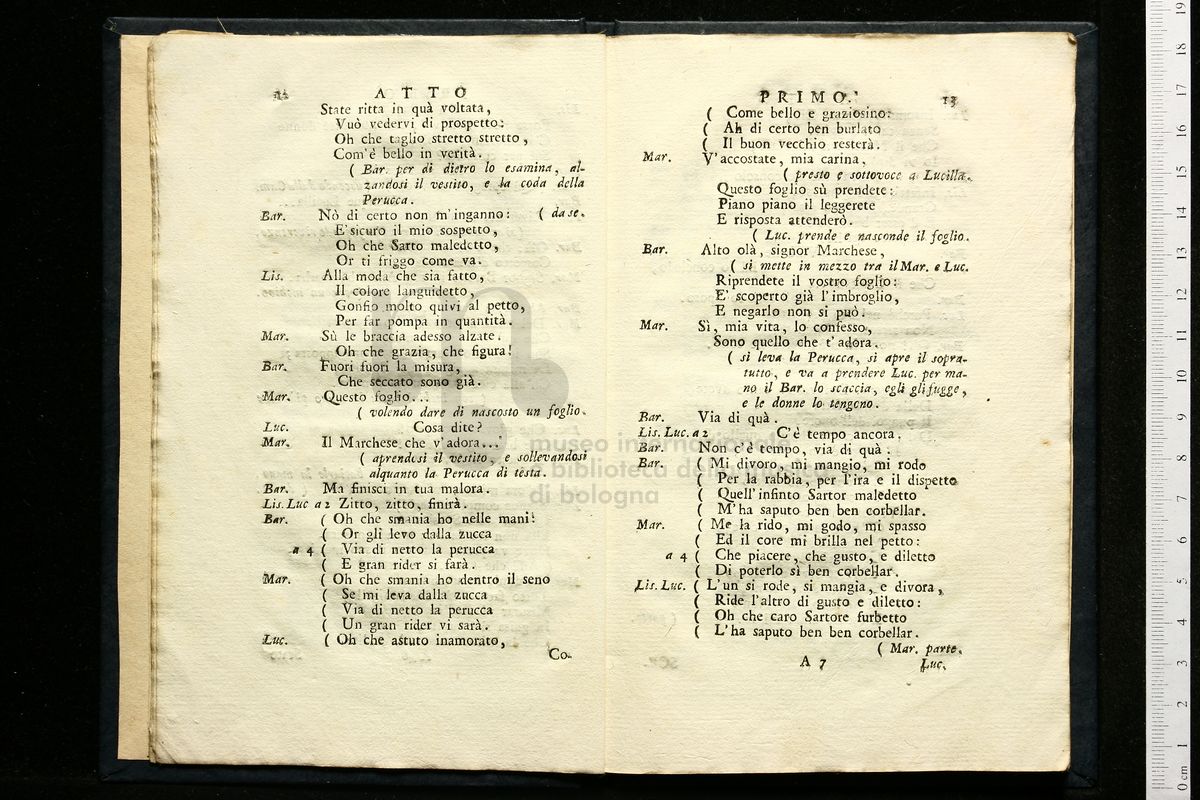 12 ATTO
State ritta in quà voltata,
Vuò vedervi di prospetto:
Oh che taglio stretto stretto,
Com'è bello in verità.
( Bar. per di dietro lo esamina, al-
zandosi il vestito, e la coda della
Perucca.
Bar. Nò di certo non m'inganno: ( da se.
E' sicuro il mio sospetto,
Oh che Sarto maledetto,
Or ti friggo come va.
Lis. Alla moda che sia fatto,
Il colore languidetto,
Gonfio molto quivi al petto,
Per far pompa in quantità.
Mar. Sù le braccia adesso alzate.
Oh che grazia, che figura!
Bar. Fuori fuori la misura,
Che seccato sono già.
Mar. Questo foglio...
( volendo dare di nascosto un foglio.
Luc. Cosa dite?
Mar. Il Marchese che v'adora...
( aprendosi il vestito, e sollevandosi
alquanto la Perucca di testa.
Bar. Ma finisci in tua malora.
Lis. Luc a 2 Zitto, zitto, finirà.
Bar. ( Oh che smania ho nelle mani!
( Or gli levo dalla zucca
a 4 ( Via di netto la perucca
( E gran rider si farà.
Mar. ( Oh che smania ho dentro il seno
( Se mi leva dalla zucca
( Via di netto la perucca
( Un gran rider vi sarà.
Luc. ( Oh che astuto inamorato,
Co-
PRIMO. 13
( Come bello e graziosino:
( Ah di certo ben burlato
( Il buon vecchio resterà.
Mar. V'accostate, mia carina,
( presto e sottovoce a Lucilla.
Questo foglio sù prendete:
Piano piano il leggerete
E risposta attenderò.
( Luc. prende e nasconde il foglio.
Bar. Alto olà, signor Marchese,
( si mette in mezzo tra il Mar. e Luc.
Riprendete il vostro foglio:
E' scoperto già l'imbroglio,
E negarlo non si può.
Mar. Sì, mia vita, lo confesso,
Sono quello che t'adora.
( si leva la Perucca, si apre il sopra-
tutto, e va a prendere Luc. per ma-
no il Bar. lo scaccia, egli gli fugge,
e le donne lo tengono.
Bar. Via di quà.
Lis. Luc. a 2 C'è tempo ancora.
Bar. Non c'è tempo, via di quà.
Bar. ( Mi divoro, mi mangio, mi rodo
( Per la rabbia, per l'ira e il dispetto
( Quell'infinto Sartor maledetto
( M'ha saputo ben ben corbellar.
Mar. ( Me la rido, mi godo, mi spasso
( Ed il core mi brilla nel petto:
a 4 ( Che piacere, che gusto, e diletto
( Di poterlo sì ben corbellar.
Lis. Luc. ( L'un si rode, si mangia, e divora,
( Ride l'altro di gusto e diletto:
( Oh che caro Sartore furbetto
( L'ha saputo ben ben corbellar.
( Mar. parte.
A 7 Luc.
museo internazionale
e biblioteca della musica
di bologna
0 cm 1 2 3 4 5 6 7 8 9 10 11 12 13 14 15 16 17 18 19